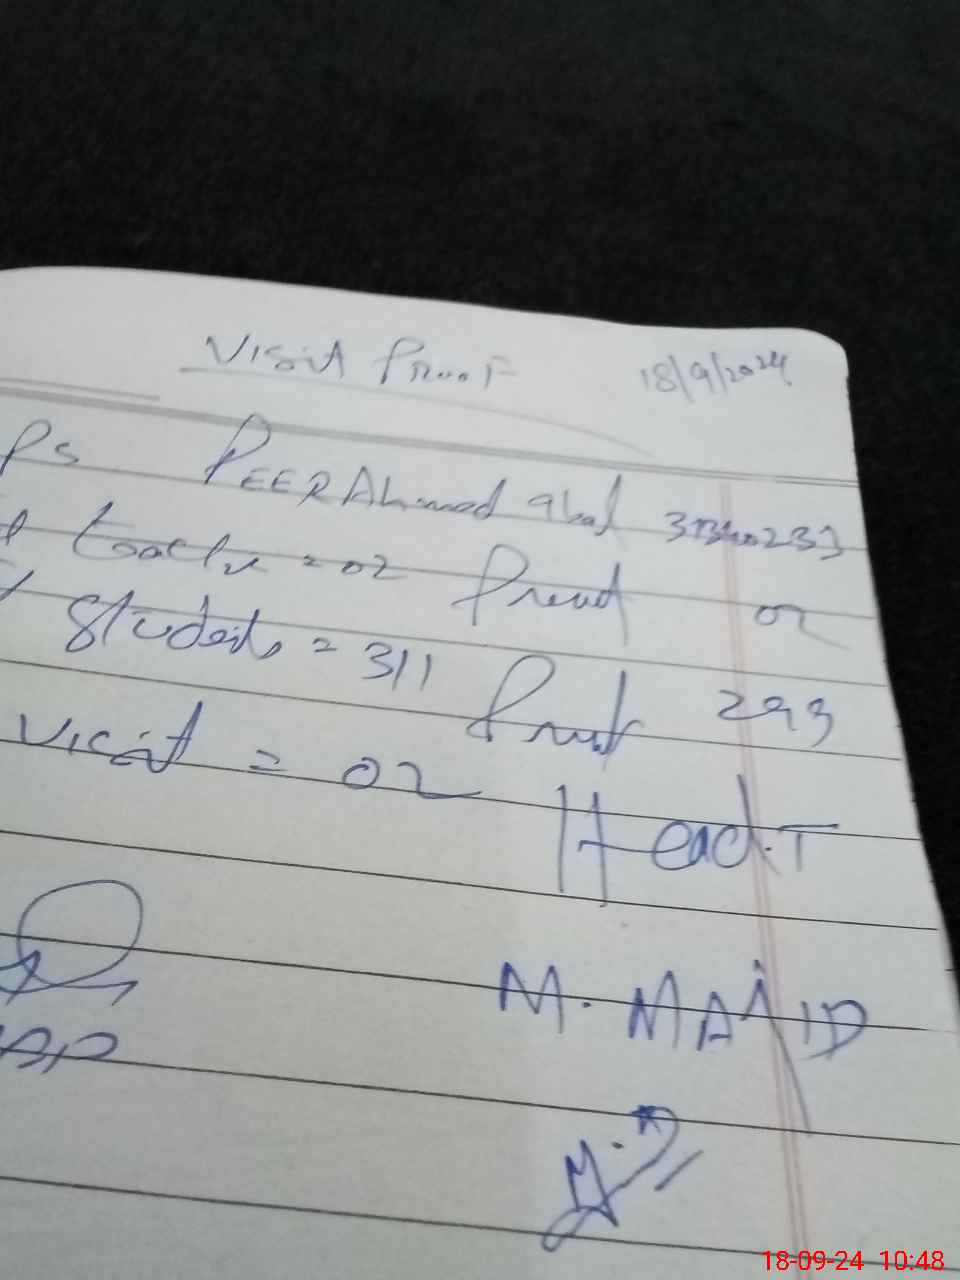 Visit Proof 18/9/2024
PS PEER Ahmed
teacher = 02 Presnt 02
Students = 311 Presnt 293
Visit = 02
Head.T
M. MAJID
18-09-24 10:48